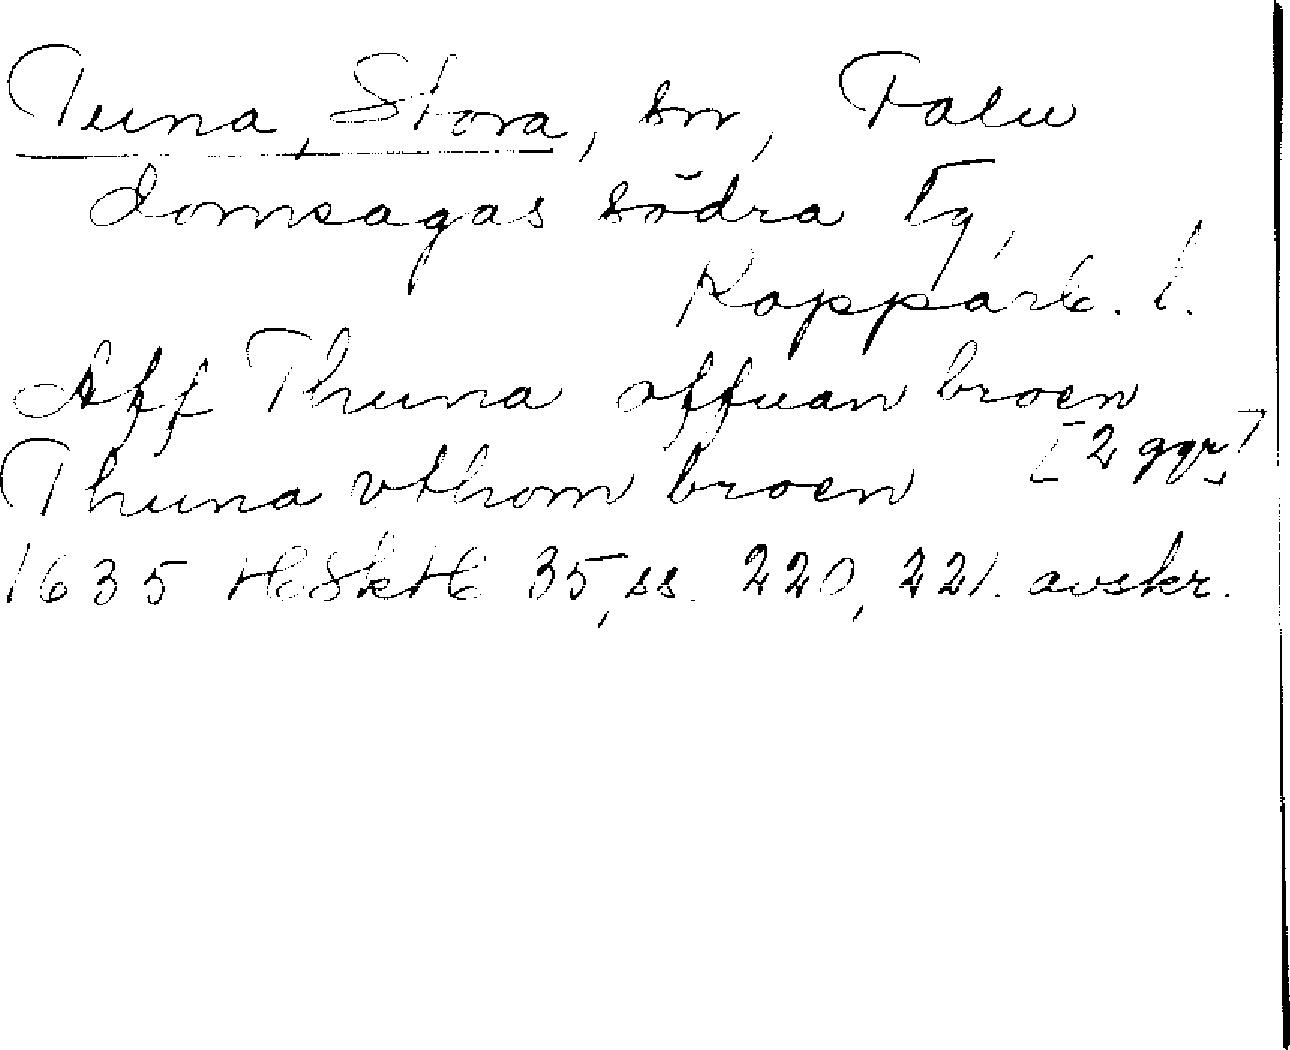 Tuna, Stora, sn, Falu
domsagas södra tg,
Kopparb. l.
Aff Thuna offuan broen
[2 ggr]
Thuna vthom broen
1635 HSkH 35, ss. 220, 221. avskr.